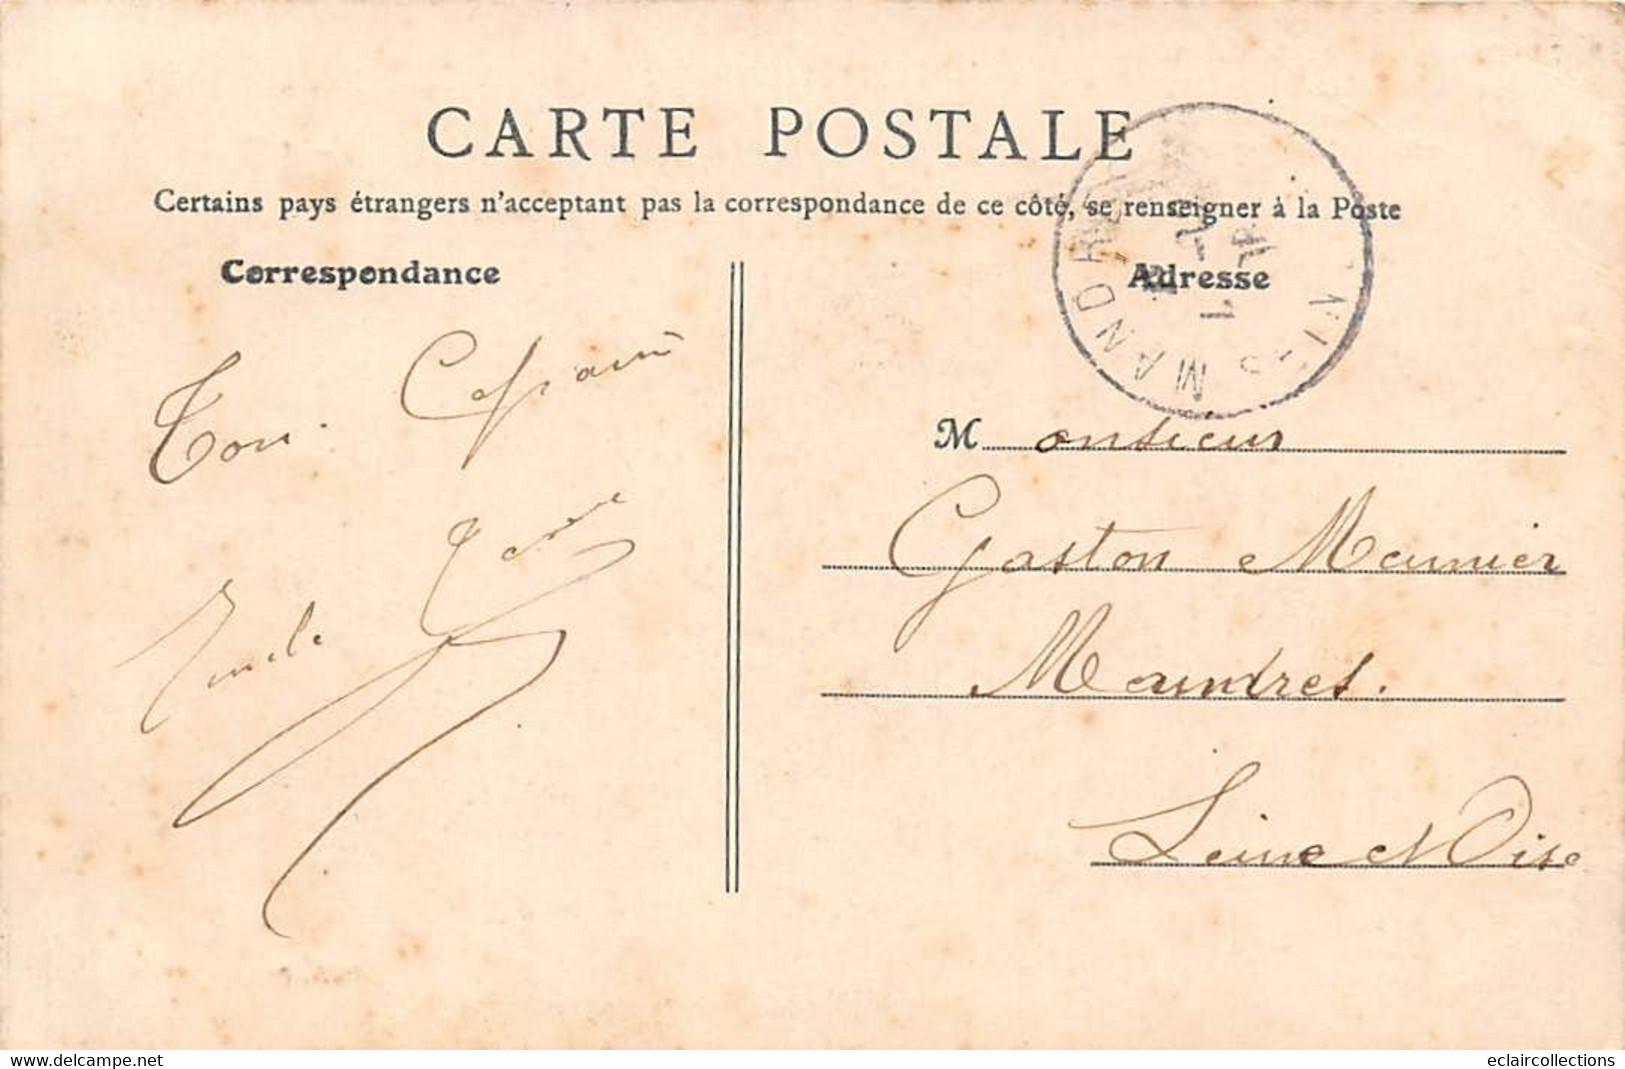 CARTE POSTALE
Certains pays étrangers n'acceptant pas la correspondance de ce côté, se renseigner à la Poste
Correspondance
Adresse
Ton
M onsieur
Gaston Meunier
Mandres.
Seine et Oise
MANDRES
www.delcampe.net
eclaircollections